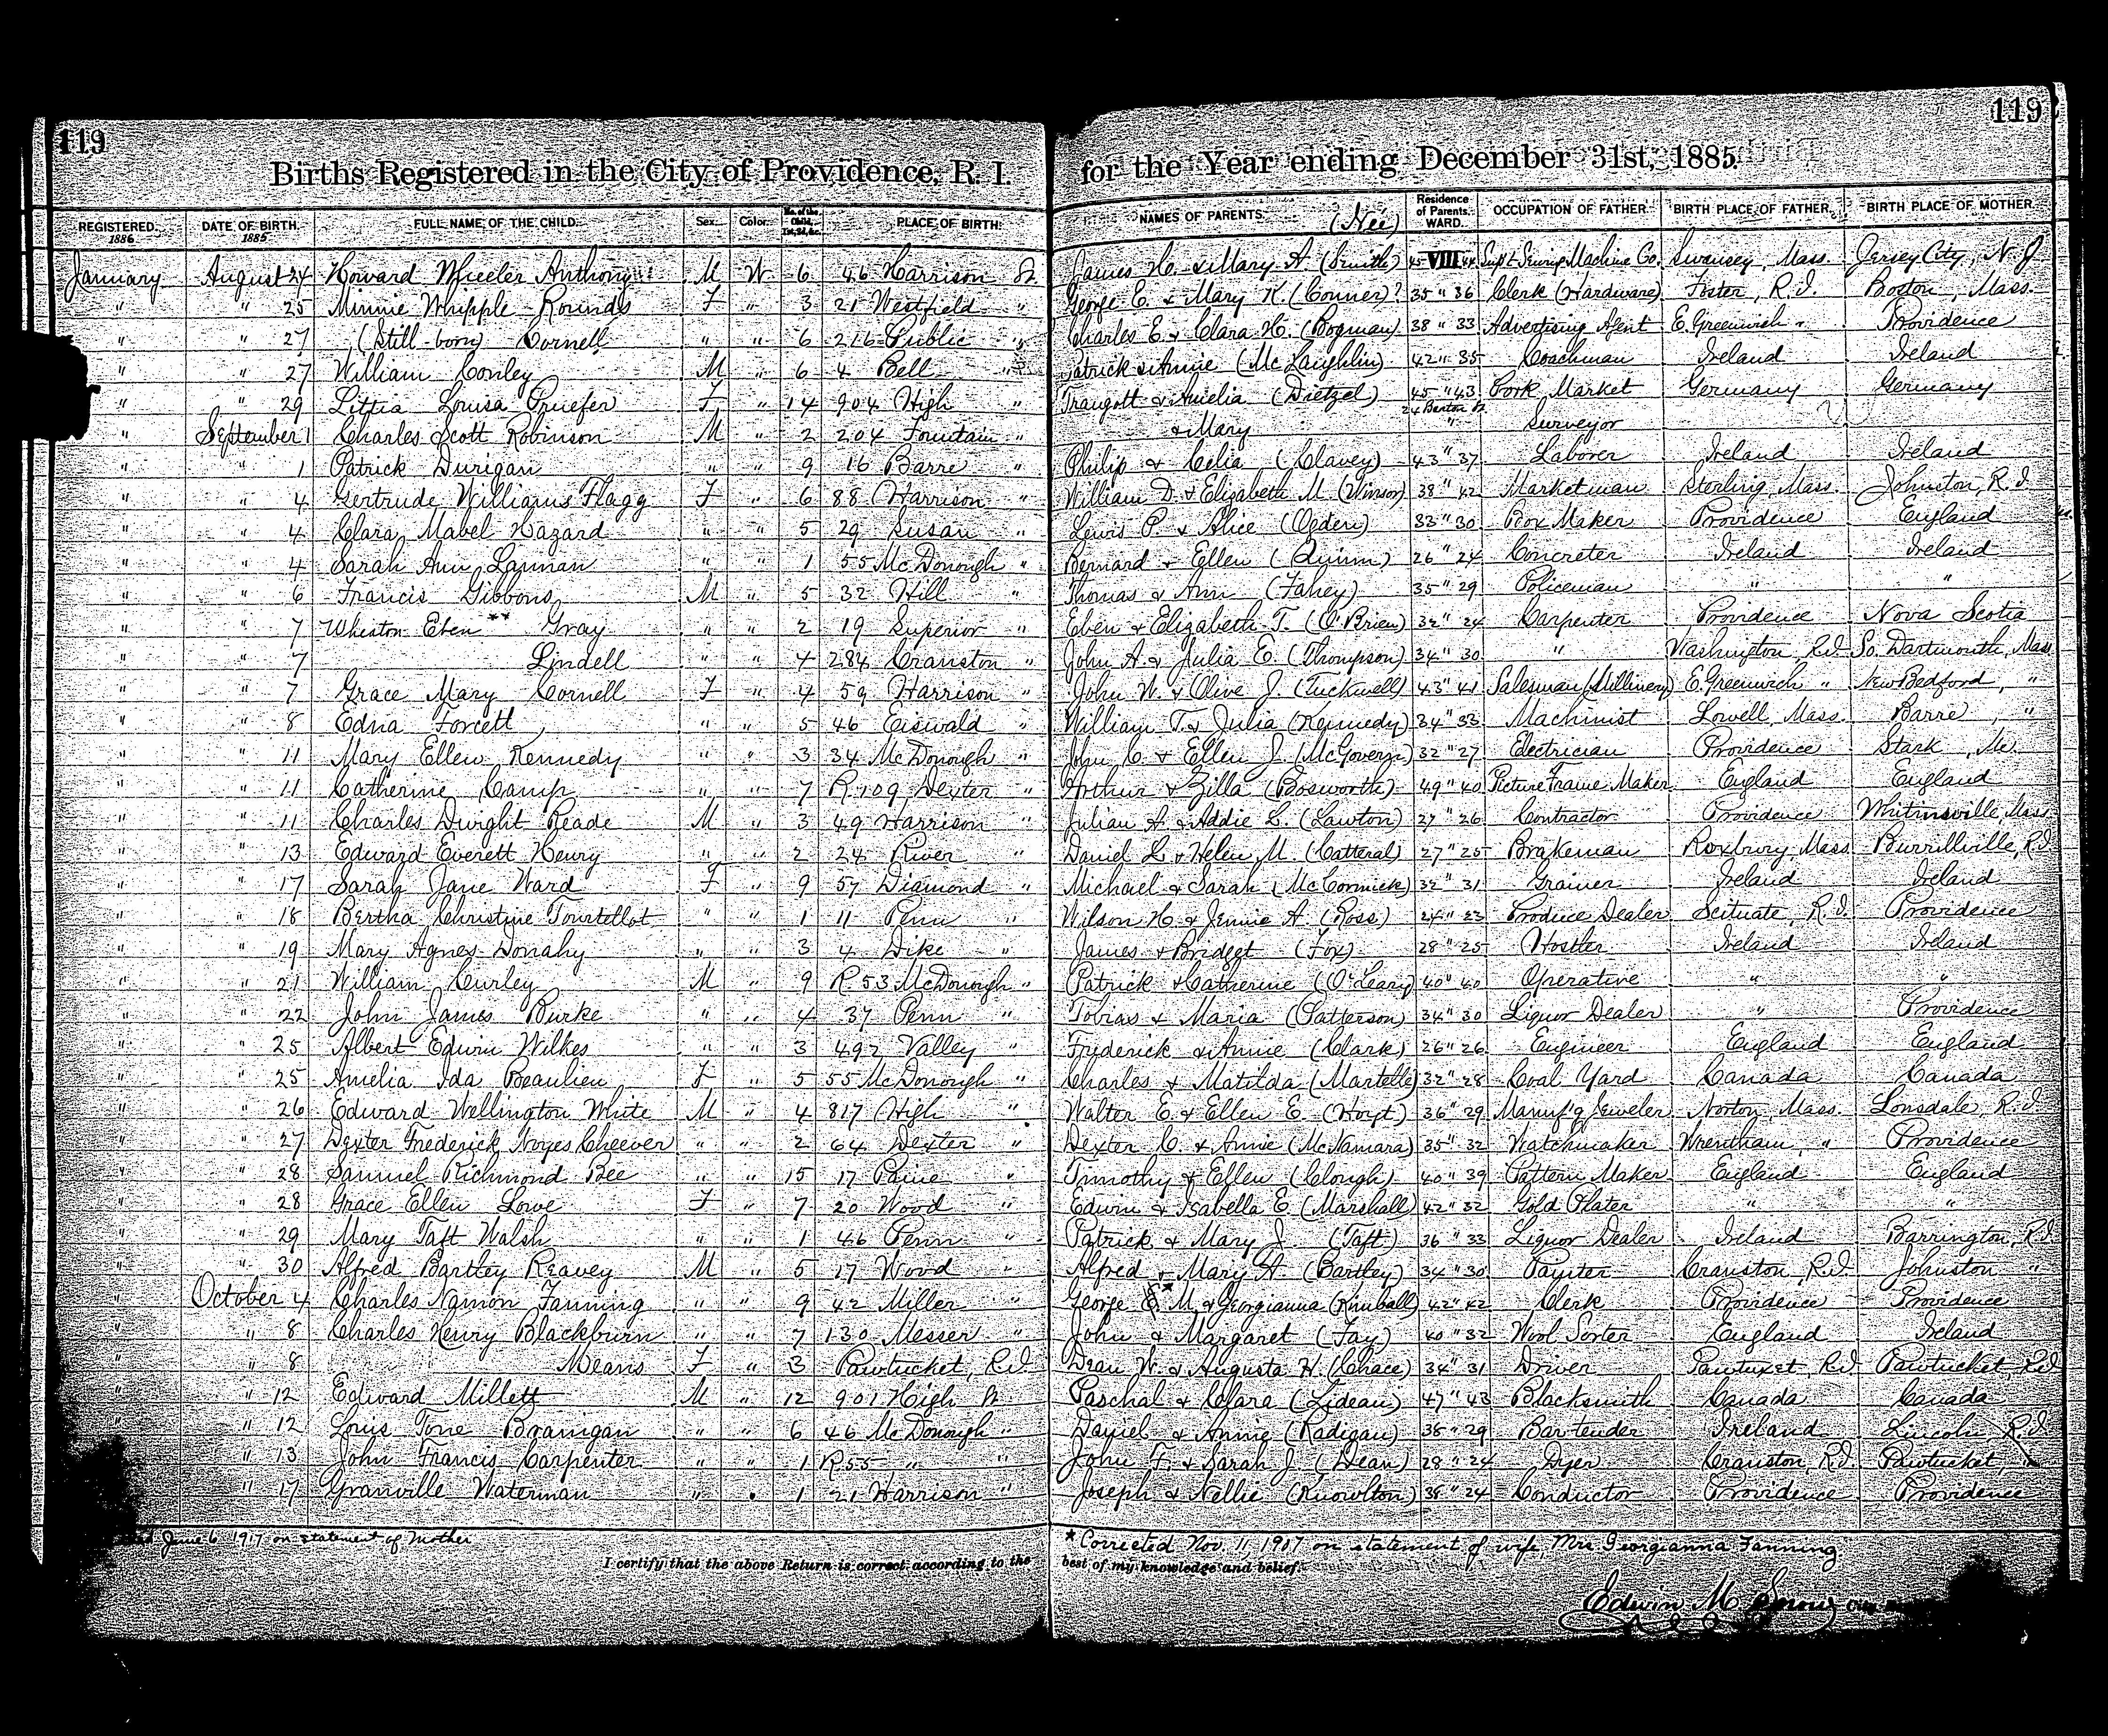 119
119
Births Registered in the City of Providence, R. I. for the Year ending December 31st, 1885.
REGISTERED. 1886 DATE OF BIRTH. 1885 FULL NAME OF THE CHILD. Sex. Color. No. of the Child, 1st, 2d, &c. PLACE OF BIRTH. NAMES OF PARENTS. (Née) Residence of Parents. WARD. OCCUPATION OF FATHER. BIRTH PLACE OF FATHER. BIRTH PLACE OF MOTHER.
January August 24 Howard Wheeler Anthony M W 6 46 Harrison St. James H. & Mary A. (Smith) 45 VIII 44 Supt. Sewing Machine Co. Swansey, Mass. Jersey City, N. J.
" " 25 Minnie Whipple Rounds F " 3 21 Westfield " George E. & Mary K. (Conner)? 35 " 36 Clerk (Hardware) Foster, R.I. Boston, Mass.
" " 27 (Still-born) Cornell " " 6 216 Public " Charles E. & Clara H. (Bogman) 38 " 33 Advertising Agent E. Greenwich " Providence
" " 27 William Conley M " 6 4 Bell " Patrick & Annie (McLaughlin) 42 " 35 Coachman Ireland Ireland
" " 29 Littia Louisa Pruefer F " 14 904 High " Traugott & Amelia (Dietzel) 45 " 43 Pork Market Germany Germany
24 Benton St.
" September 1 Charles Scott Robinson M " 2 204 Fountain " & Mary " Surveyor
" " 1 Patrick Durigan " " 9 16 Barre " Philip & Celia (Clavey) 43 " 37 Laborer Ireland Ireland
" " 4 Gertrude Williams Flagg F " 6 88 Harrison " William D. & Elizabeth M. (Winsor) 38 " 42 Marketman Sterling, Mass. Johnston, R.I.
" " 4 Clara Mabel Hazard " " 5 29 Susan " Lewis P. & Alice (Ogden) 33 " 30 Box Maker Providence England
" " 4 Sarah Ann Lannan " " 1 55 McDonough " Bernard & Ellen (Quinn) 26 " 24 Concreter Ireland Ireland
" " 6 Francis Gibbons M " 5 32 Hill " Thomas & Ann (Fahey) 35 " 29 Policeman " "
" " 7 Wheaton Eben ** Gray " " 2 19 Superior " Eben & Elizabeth T. (O'Brien) 32 " 24 Carpenter Providence Nova Scotia
" " 7 Lindell " " 4 284 Cranston " John A. & Julia E. (Thompson) 34 " 30 " Washington, R.I. So. Dartmouth, Mass.
" " 7 Grace Mary Cornell F " 4 59 Harrison " John W. & Olive J. (Tuckwell) 43 " 41 Salesman (Millinery) E. Greenwich " New Bedford, "
" " 8 Edna Forcett " " 5 46 Eiswald " William T. & Julia (Kennedy) 34 " 33 Machinist Lowell, Mass. Barre, "
" " 11 Mary Ellen Kennedy " " 3 34 McDonough " John C. & Ellen J. (McGovern) 32 " 27 Electrician Providence Stark, Me.
" " 11 Catherine Camp " " 7 R. 109 Dexter " Arthur & Zilla (Bosworth) 49 " 40 Picture Frame Maker England England
" " 11 Charles Dwight Reade M " 3 49 Harrison " Julian A. & Addie L. (Lawton) 27 " 26 Contractor Providence Whitinsville, Mass.
" " 13 Edward Everett Henry " " 2 24 River " Daniel L. & Helen M. (Catteral) 27 " 25 Brakeman Roxbury, Mass. Burrillville, R.I.
" " 17 Sarah Jane Ward F " 9 57 Diamond " Michael & Sarah (McCormick) 32 " 31 Grainer Ireland Ireland
" " 18 Bertha Christine Tourtellot " " 1 11 Penn " Wilson H. & Jennie A. (Ross) 24 " 23 Produce Dealer Scituate, R.I. Providence
" " 19 Mary Agnes Donahy " " 3 4 Dike " James & Bridget (Fox) 28 " 25 Hostler Ireland Ireland
" " 21 William Curley M " 9 R. 53 McDonough " Patrick & Catherine (O'Leary) 40 " 40 Operative " "
" " 22 John James Burke " " 4 37 Penn " Tobias & Maria (Patterson) 34 " 30 Liquor Dealer " Providence
" " 25 Albert Edwin Wilkes " " 3 492 Valley " Frederick & Annie (Clark) 26 " 26 Engineer England England
" " 25 Amelia Ida Beaulieu F " 5 55 McDonough " Charles & Matilda (Martelle) 32 " 28 Coal Yard Canada Canada
" " 26 Edward Wellington White M " 4 817 High " Walter E. & Ellen E. (Hoyt) 36 " 29 Manuf'g Jeweler Norton, Mass. Lonsdale, R.I.
" " 27 Dexter Frederick Noyes Cheever " " 2 64 Dexter " Dexter C. & Annie (McNamara) 35 " 32 Watchmaker Wrentham, " Providence
" " 28 Samuel Richmond Bee " " 15 17 Paine " Timothy & Ellen (Clough) 40 " 39 Pattern Maker England England
" " 28 Grace Ellen Lowe F " 7 20 Wood " Edwin & Isabella E. (Marshall) 42 " 32 Gold Plater " "
" " 29 Mary Taft Walsh " " 1 46 Penn " Patrick & Mary J. (Taft) 36 " 33 Liquor Dealer Ireland Barrington, R.I.
" " 30 Alfred Bartley Reavey M " 5 17 Wood " Alfred & Mary A. (Bartley) 34 " 30 Paynter Cranston, R.I. Johnston "
" October 4 Charles Namon Fanning " " 9 42 Miller " George E.* M. & Georgianna (Kimball) 42 " 42 Clerk Providence Providence
" " 8 Charles Henry Blackburn " " 7 130 Messer " John & Margaret (Fay) 40 " 32 Wool Sorter England Ireland
" " 8 Means F " 3 Pawtucket, R.I. Dean W. & Augusta H. (Chace) 34 " 31 Driver Pawtuxet, R.I. Pawtucket, R.I.
" " 12 Edward Millett M " 12 901 High St. Paschal & Clara (Lideau) 47 " 43 Blacksmith Canada Canada
" " 12 Louis Tone Brannigan " " 6 46 McDonough " Daniel & Annie (Radigan) 38 " 29 Bar-tender Ireland Lincoln R.I.
" " 13 John Francis Carpenter " " 1 R 55 " " John F. & Sarah J. (Dean) 28 " 24 Dyer Cranston, R.I. Pawtucket, "
" 17 Granville Waterman " " 1 21 Harrison " Joseph & Nellie (Knowlton) 38 " 24 Conductor Providence Providence
June 6 1917 on statement of Mother
* Corrected Nov. 11 1907 on statement of wife, Mrs Georgianna Fanning
I certify that the above Return is correct according to the best of my knowledge and belief.
Edwin M. Snow City